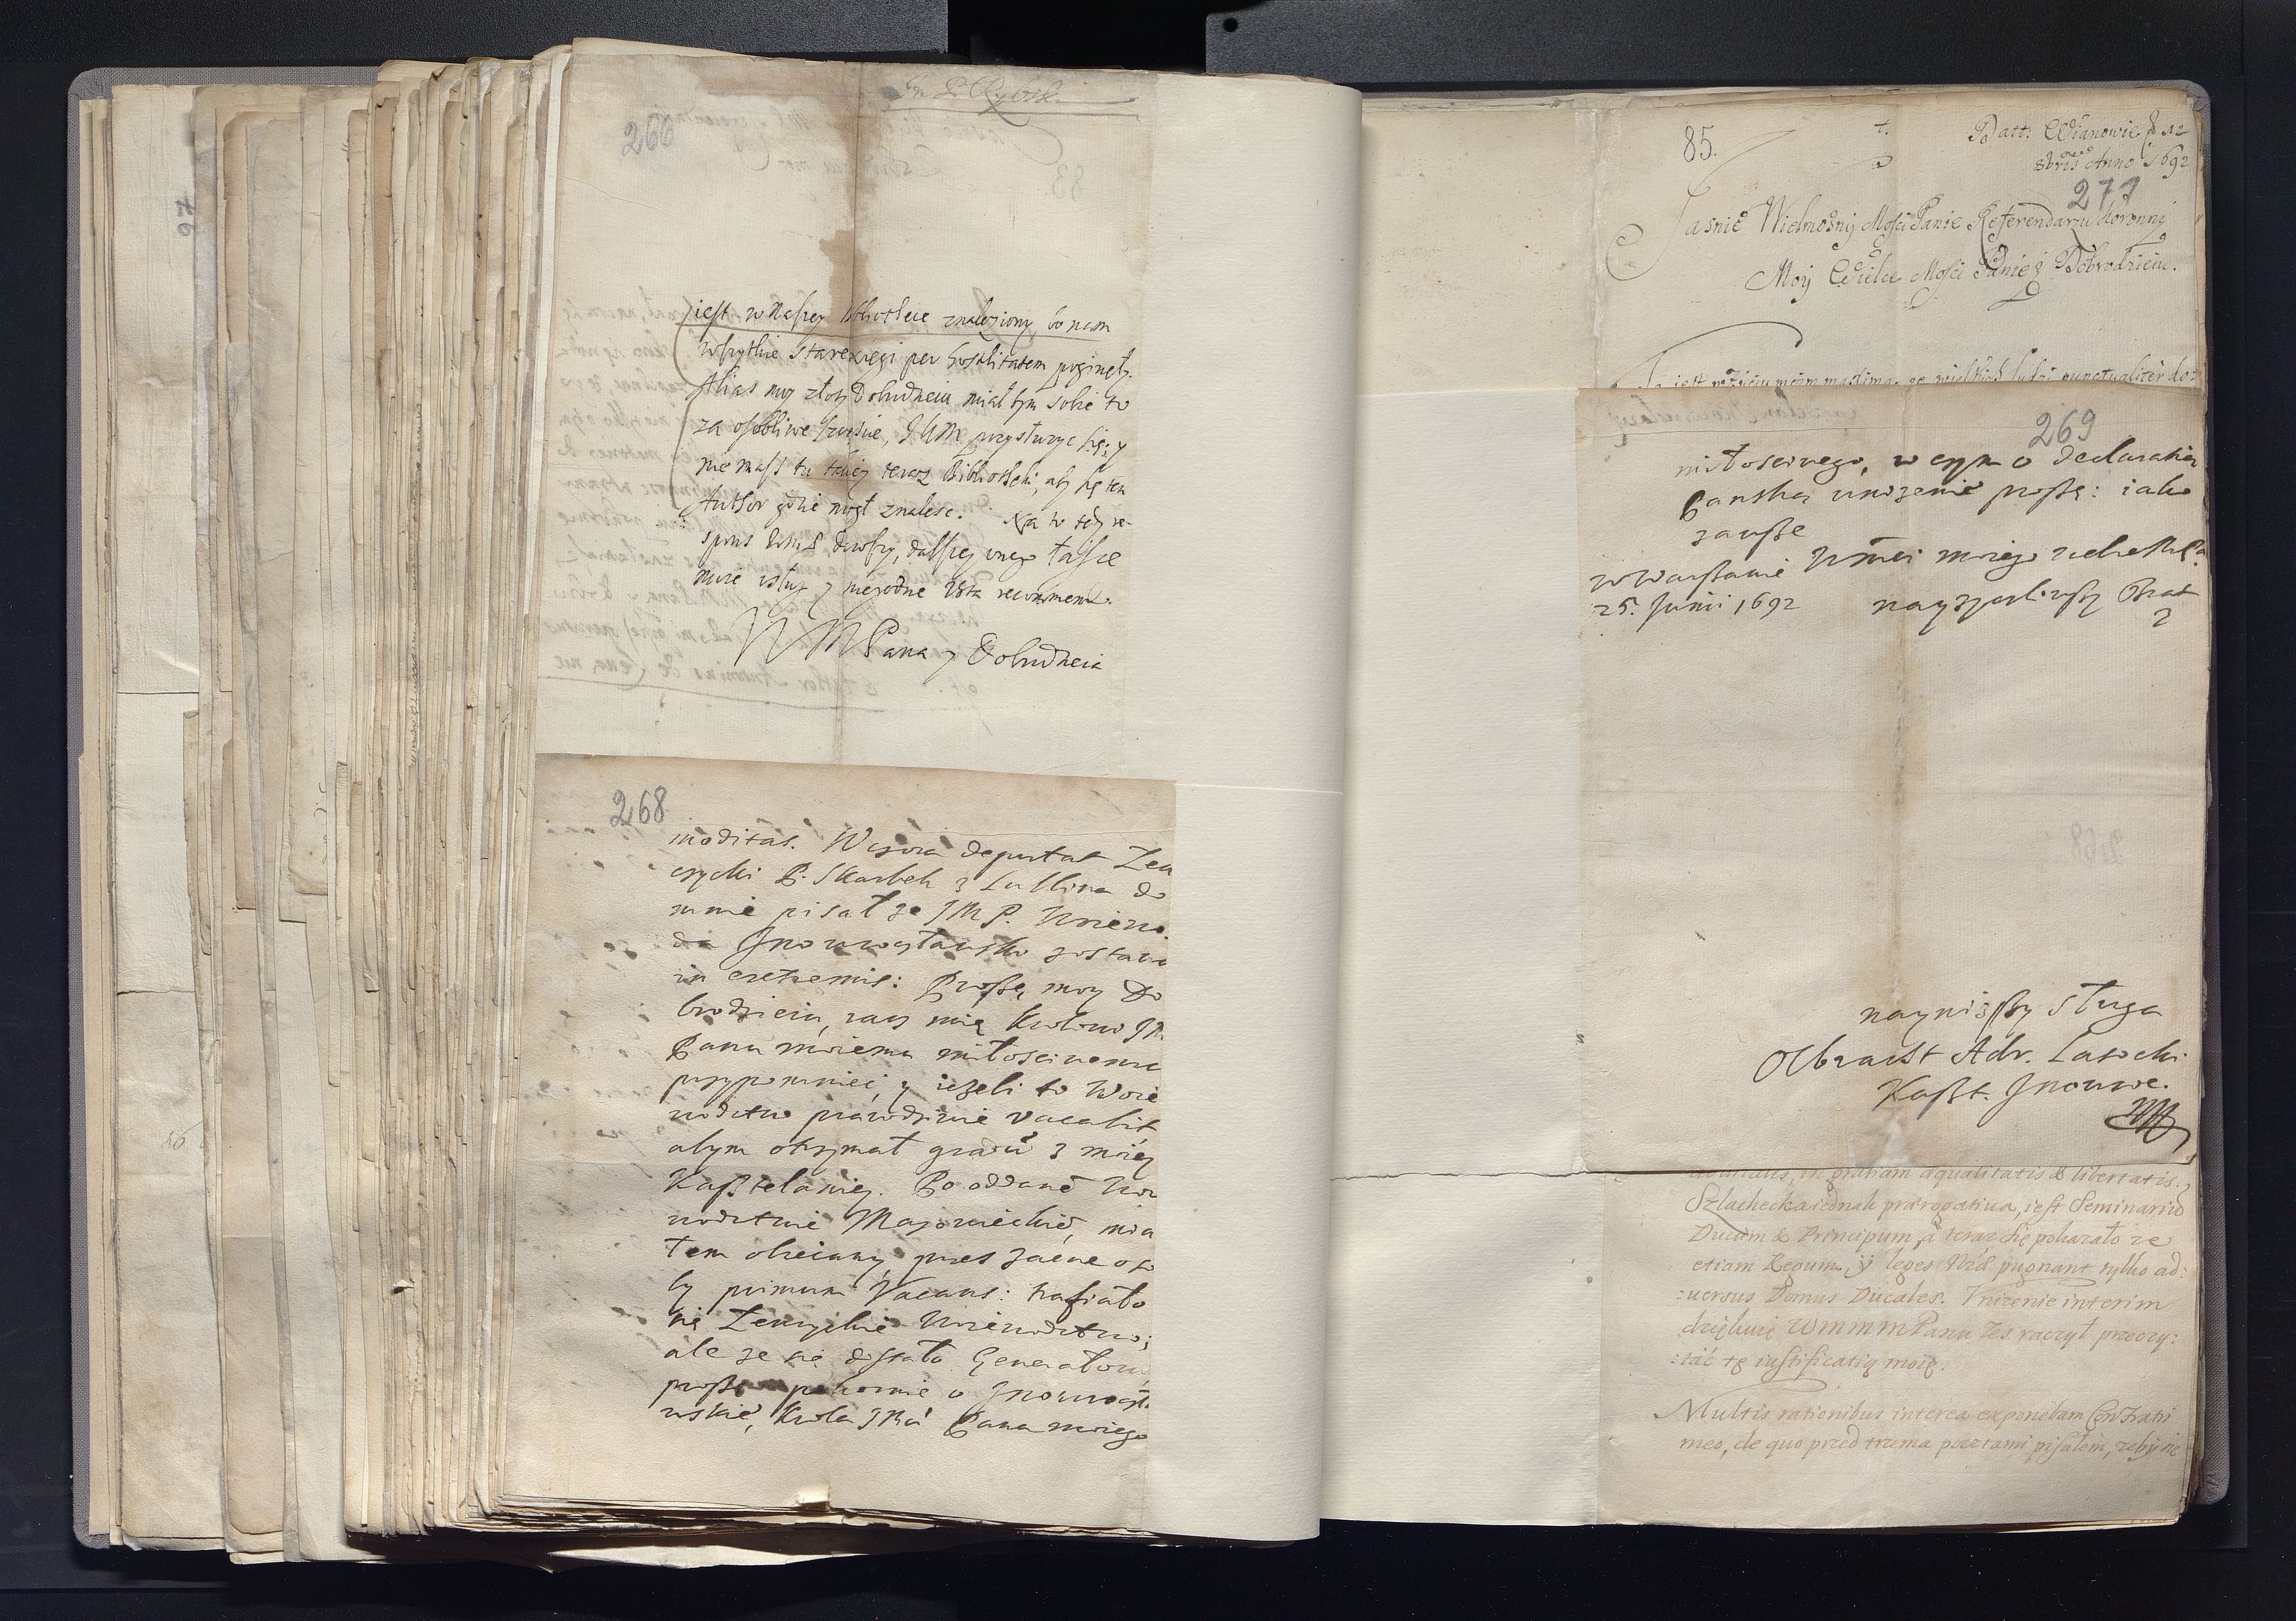 266
jest w naszey Bibliotece znaleziony, bo nam
wszytkie stare xięgi per hostilitatem poginęły.
Alias moy złoty Dobrodzieiu miał bym sobie to
za osobliwe szczęście, JWM przysłużyc się, y
nie masz tu takiey teraz Biblioteki, aby się ten
Author gdzie mogł znalesc. Na to tedy re-
spons WM dawszy, dalszey onego łasce
moie usługi y niegodne vota recommend.
WMPana y Dobrodzieia
268
moditas. Wczora deputat Łen
czycki P. Skarbek z Lublina do
mnie pisał ze JMP. Woiewo
da Jnowrocławski zostaie
in extremis: Proszę moy Do
brodzieiu, racz mię Krolowi JM.
Panu moiemu miłosciwemu
przypomniec, y iezeli to Woie
wodztwo prawdziwie vacabit
abym otrzymał gradu z moiey
Kasztelaniey. Po oddane Wo
wodztwie Mazowieckie, mia
łem obiecany przez zacne oso
by primum Vacans: trafiało
się Łenczyckie Woiewodztwo;
ale ze się dostało Generałowi
proszę pokornie o Jnowrocł
wskie, Krola JMci Pana moiego
85.
Datt: Wianowie d 12
8bris Anno 1692
277
Jasnie Wielmożny Mości Panie Referendarzu Koronny
Moy Wielce Mości Panie y Dobrodzieiu.
jest w życiu moim maxima, że wielkich ludzi punctualiter do:
269
miłosciwego, w czym o declaratią
Panską unizenie proszę: iako
zawsze
w Warszawie WMci moiego wielce MP.
25. Junii 1692 nayzyczliwszy Brat
2
nayniższy sługa
Olbracht Adr. Lasocki
Kaszt. Jnowwe.
in gratiam aequalitatis & libertatis.
Szlachecka iednak praerogatiua, iest Seminariu
Ducum & Principum, a teraz się pokazało ze
etiam Regum, y leges Nrae pugnant tylko ad:
:uersus Domus Ducales. Vniżenie interim
dziękuię WMMMPanu żeś raczył przeczy:
:tać tę iustificatią moię.
Multis rationibus interea exponebam Confratri
meo, de quo przed trzema pocztami pisałem, żeby się